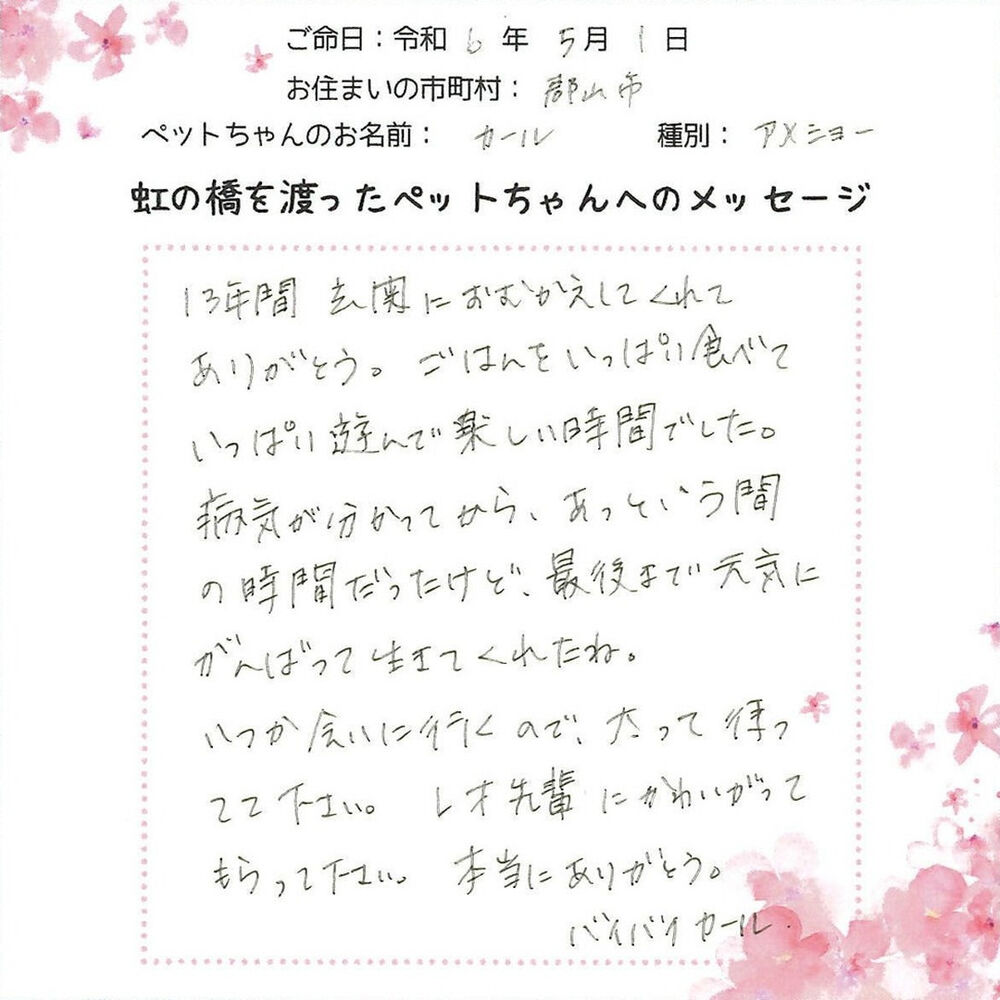 ご命日：令和 6 年 5月 1 日
お住まいの市町村： 郡山市
ペットちゃんのお名前： カール 種別： アメショー
虹の橋を渡ったペットちゃんへのメッセージ
13年間 玄関におむかえしてくれて
ありがとう。ごはんをいっぱい食べて
いっぱい遊んで楽しい時間でした。
病気が分かってから、あっという間
の時間だったけど、最後まで元気に
がんばって生きてくれたね。
いつか会いに行くので、太って待っ
てて下さい。 レオ先輩にかわいがって
もらって下さい。 本当にありがとう。
バイバイ カール.